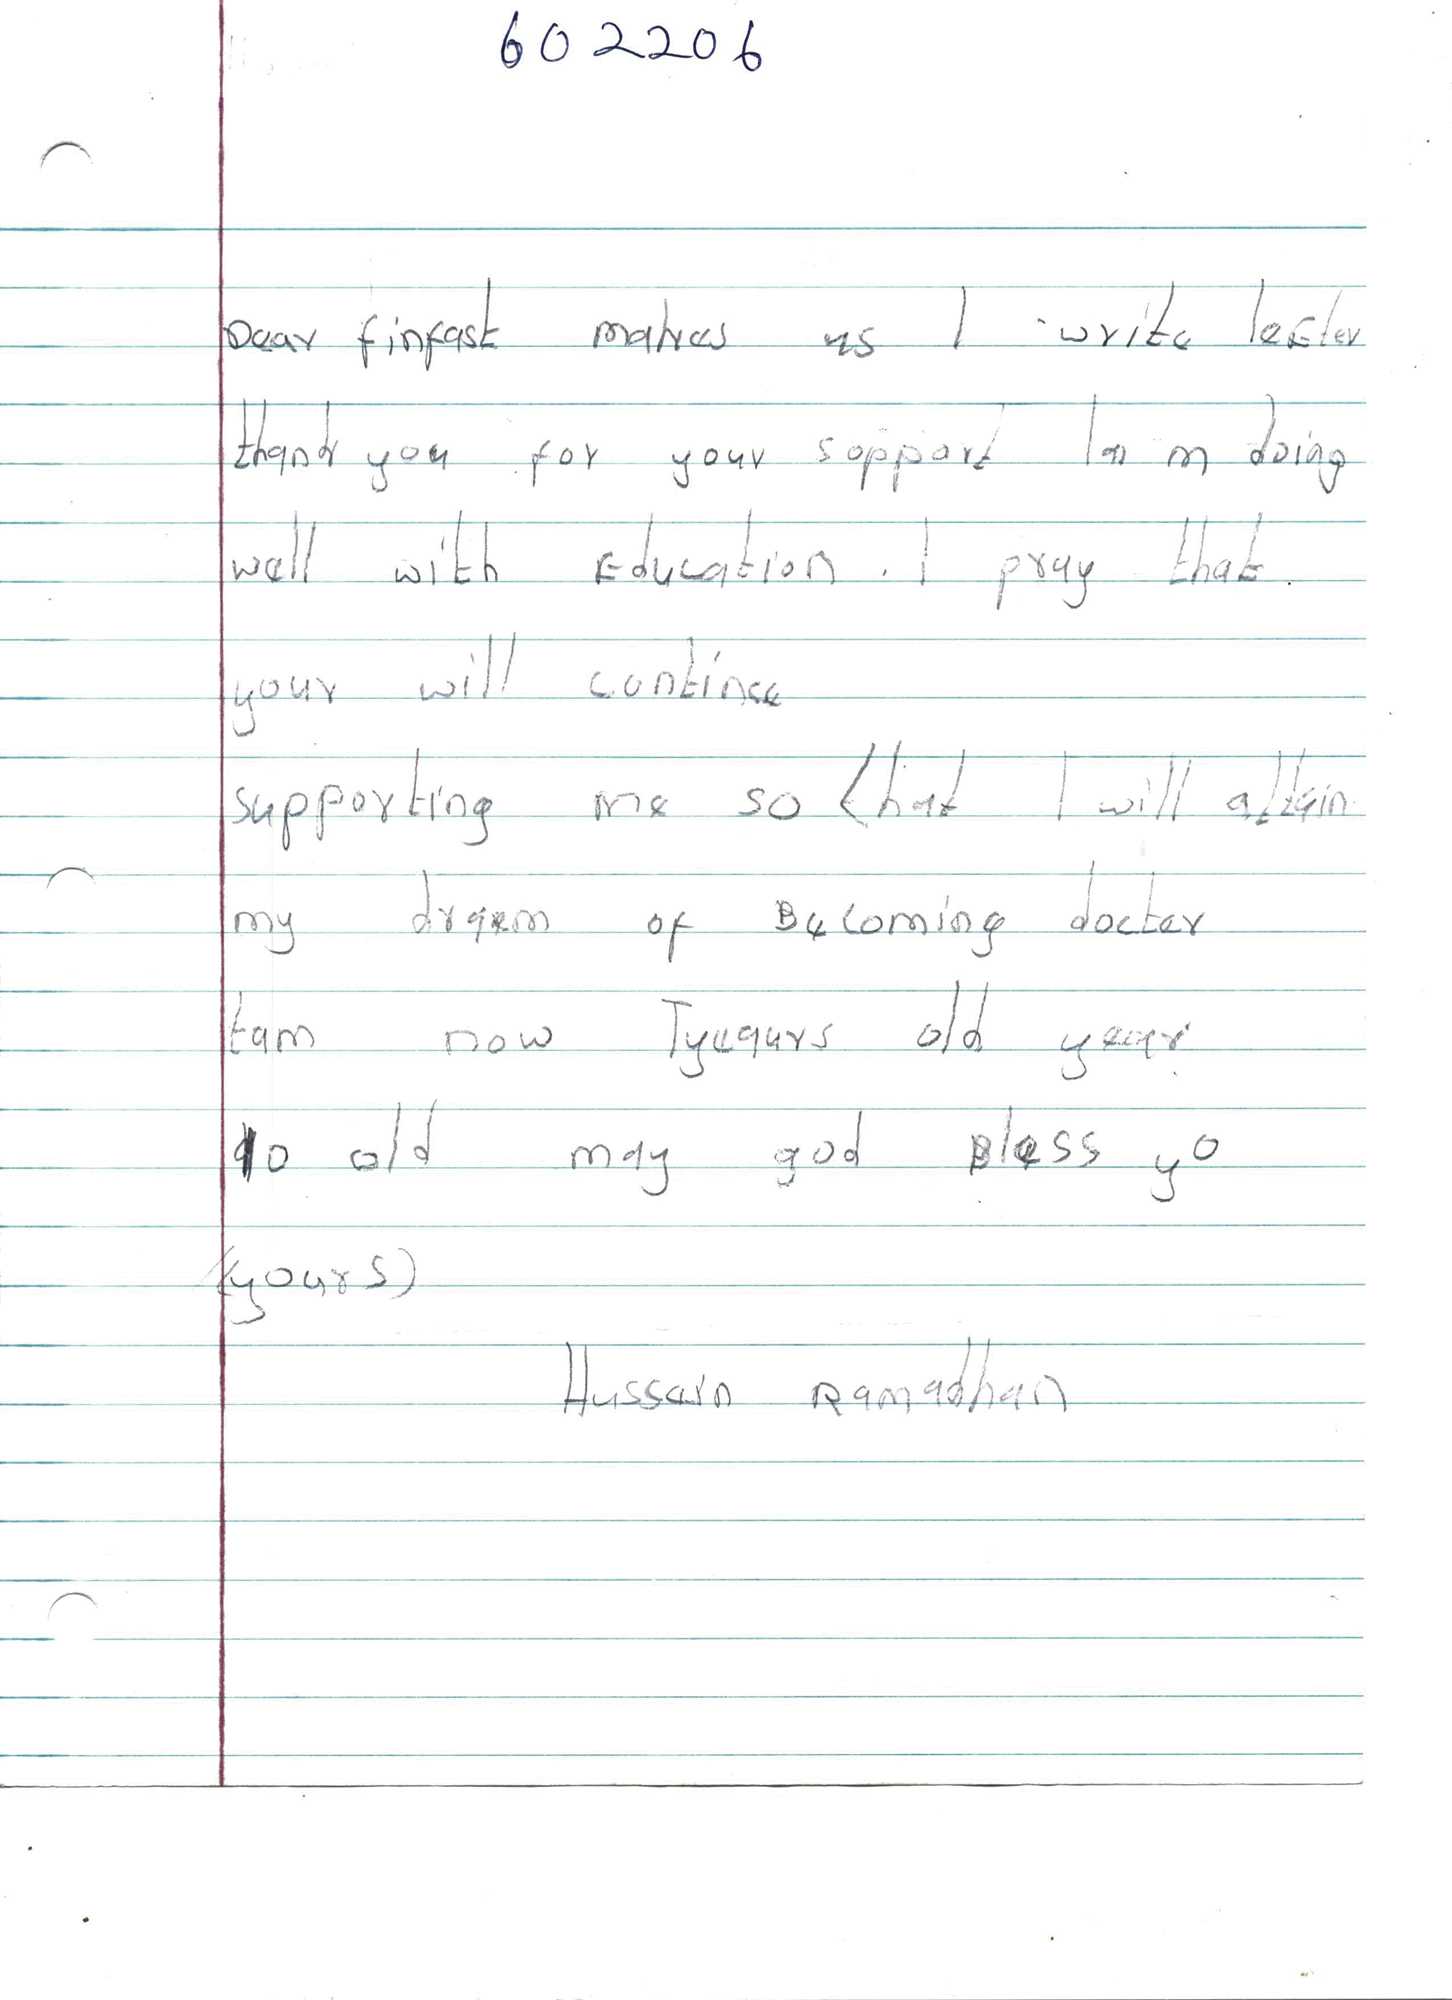 602206
Dear finfast makes us I write letter
thank you for your sopport Iam doing
well with Education. I pray that
your will contince
supporting me so that I will attain
my draem of Becoming docter
tam now Tyeaurs old year
10 old may god Bless yo
(yours)
Hussein Ramadhan